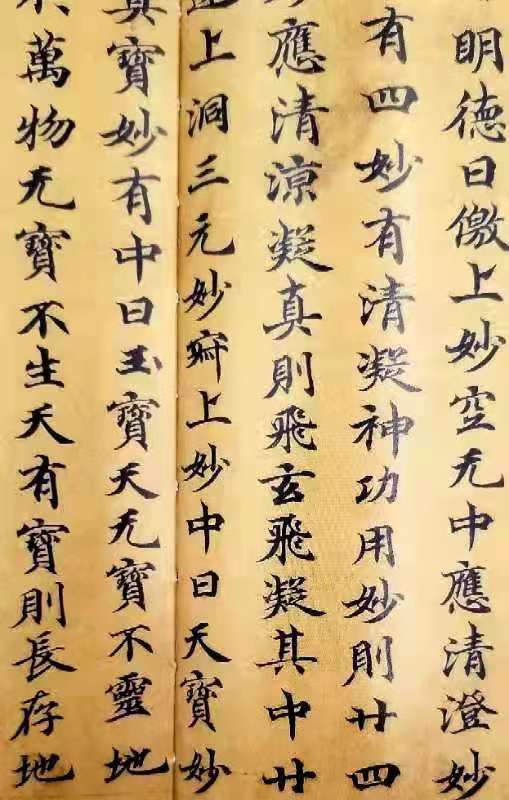 明德日儌上妙空无中應清澄妙
有四妙有清凝神功用妙則廿四
應清涼凝真則飛玄飛凝其中廿
上洞三无妙寂上妙中曰天寶妙
真寶妙有中曰玉寶天无寶不靈地
萬物无寶不生天有寶則長存地